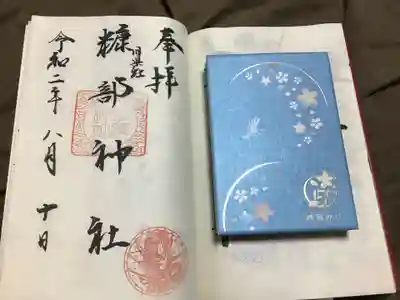 奉拝
旧県社
糠部神社
令和二年八月十日
150